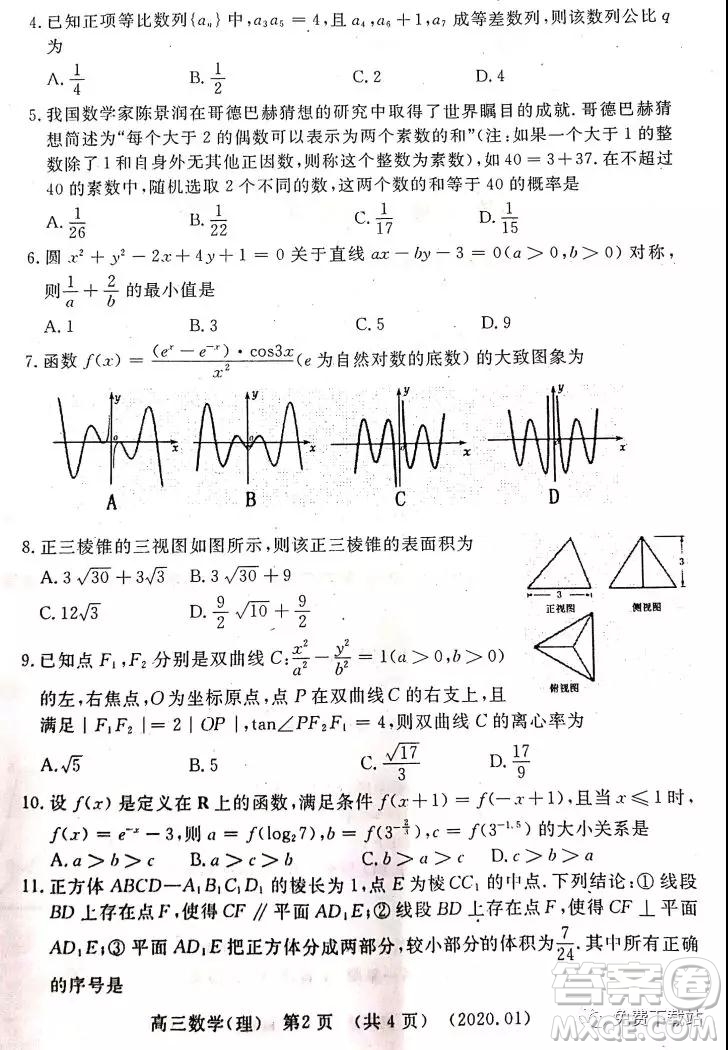 4. 已知正项等比数列{aₙ}中,a₃a₅=4,且a₄,a₆+1,a₇成等差数列,则该数列公比q
为
A. 1/4 B. 1/2 C. 2 D. 4
5. 我国数学家陈景润在哥德巴赫猜想的研究中取得了世界瞩目的成就.哥德巴赫猜
想简述为“每个大于2的偶数可以表示为两个素数的和”(注:如果一个大于1的整
数除了1和自身外无其他正因数,则称这个整数为素数),如40=3+37.在不超过
40的素数中,随机选取2个不同的数,这两个数的和等于40的概率是
A. 1/26 B. 1/22 C. 1/17 D. 1/15
6. 圆 x²+y²−2x+4y+1=0 关于直线 ax−by−3=0(a>0,b>0) 对称,
则 1/a + 2/b 的最小值是
A. 1 B. 3 C. 5 D. 9
7. 函数 f(x)=(eˣ−e⁻ˣ)·cos3x/x² (e为自然对数的底数)的大致图象为
y x o y x o y x o y x o
A B C D
8. 正三棱锥的三视图如图所示,则该正三棱锥的表面积为
A. 3√30+3√3 B. 3√30+9
C. 12√3 D. 9/2 √10 + 9/2
3 3
正视图 侧视图
俯视图
9. 已知点F₁,F₂分别是双曲线C: x²/a² − y²/b² =1(a>0,b>0)
的左,右焦点,O为坐标原点,点P在双曲线C的右支上,且
满足|F₁F₂|=2|OP|,tan∠PF₂F₁=4,则双曲线C的离心率为
A. √5 B. 5 C. √17/3 D. 17/9
10. 设f(x)是定义在R上的函数,满足条件f(x+1)=f(−x+1),且当x⩽1时,
f(x)=e⁻ˣ−3,则a=f(log₂7),b=f(3^(−2/3)),c=f(3^(−1.5))的大小关系是
A. a>b>c B. a>c>b C. b>a>c D. c>b>a
11. 正方体ABCD—A₁B₁C₁D₁的棱长为1,点E为棱CC₁的中点.下列结论:①线段
BD上存在点F,使得CF∥平面AD₁E;②线段BD上存在点F,使得CF⊥平面
AD₁E;③平面AD₁E把正方体分成两部分,较小部分的体积为7/24.其中所有正确
的序号是
高三数学(理) 第2页 (共4页) (2020.01)
答案卷
免费下载站